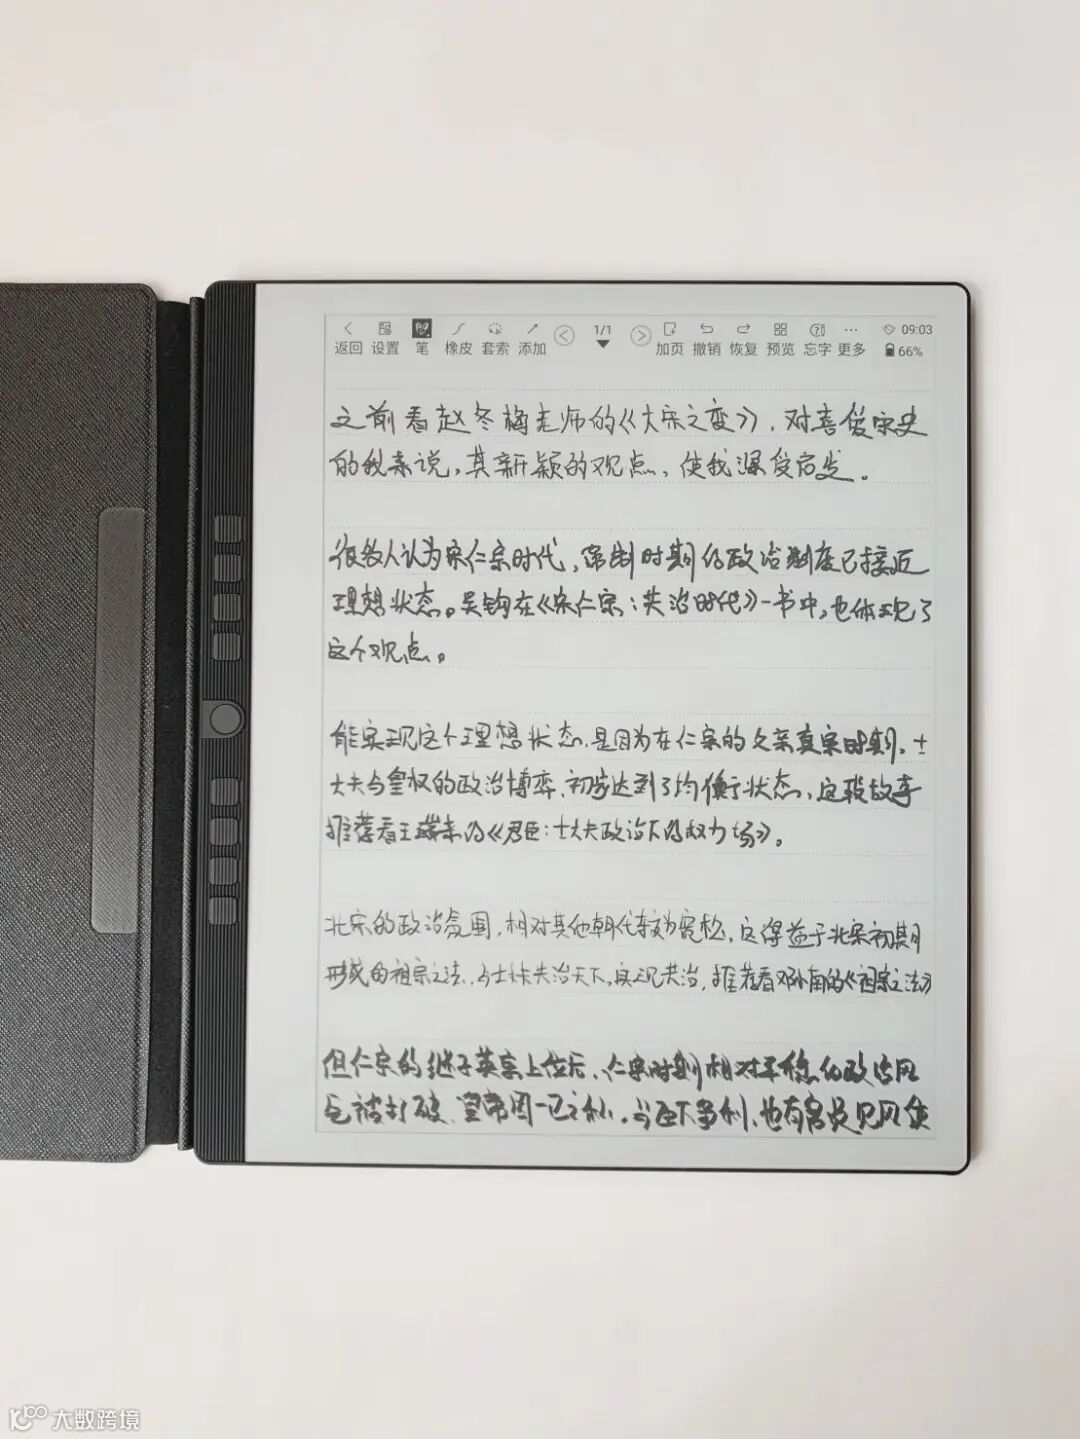 返回 设置 笔 橡皮 套索 添加 1/1 加页 撤销 恢复 预览 忘字 更多 09:03 66%
之前看赵冬梅老师的《大宋之变》，对喜爱宋史
的我来说，其新颖的观点，使我深受启发。
很多人认为宋仁宗时代，帝制时期的政治制度已接近
理想状态。吴钩在《宋仁宗：共治时代》一书中，也体现了
这个观点。
能实现这个理想状态，是因为在仁宗的父亲真宗时期，士
大夫与皇权的政治博弈，初步达到了均衡状态，这段故事
推荐看王瑞来的《君臣：士大夫政治下的权力场》。
北宋的政治氛围，相对其他朝代较为宽松，这得益于北宋初期
形成的祖宗之法，与士大夫共治天下，实现共治，推荐看邓小南的《祖宗之法》
但仁宗的继子英宗上位后，仁宗时期相对平稳的政治风
气被打破，皇帝因一己之私，
大数跨境